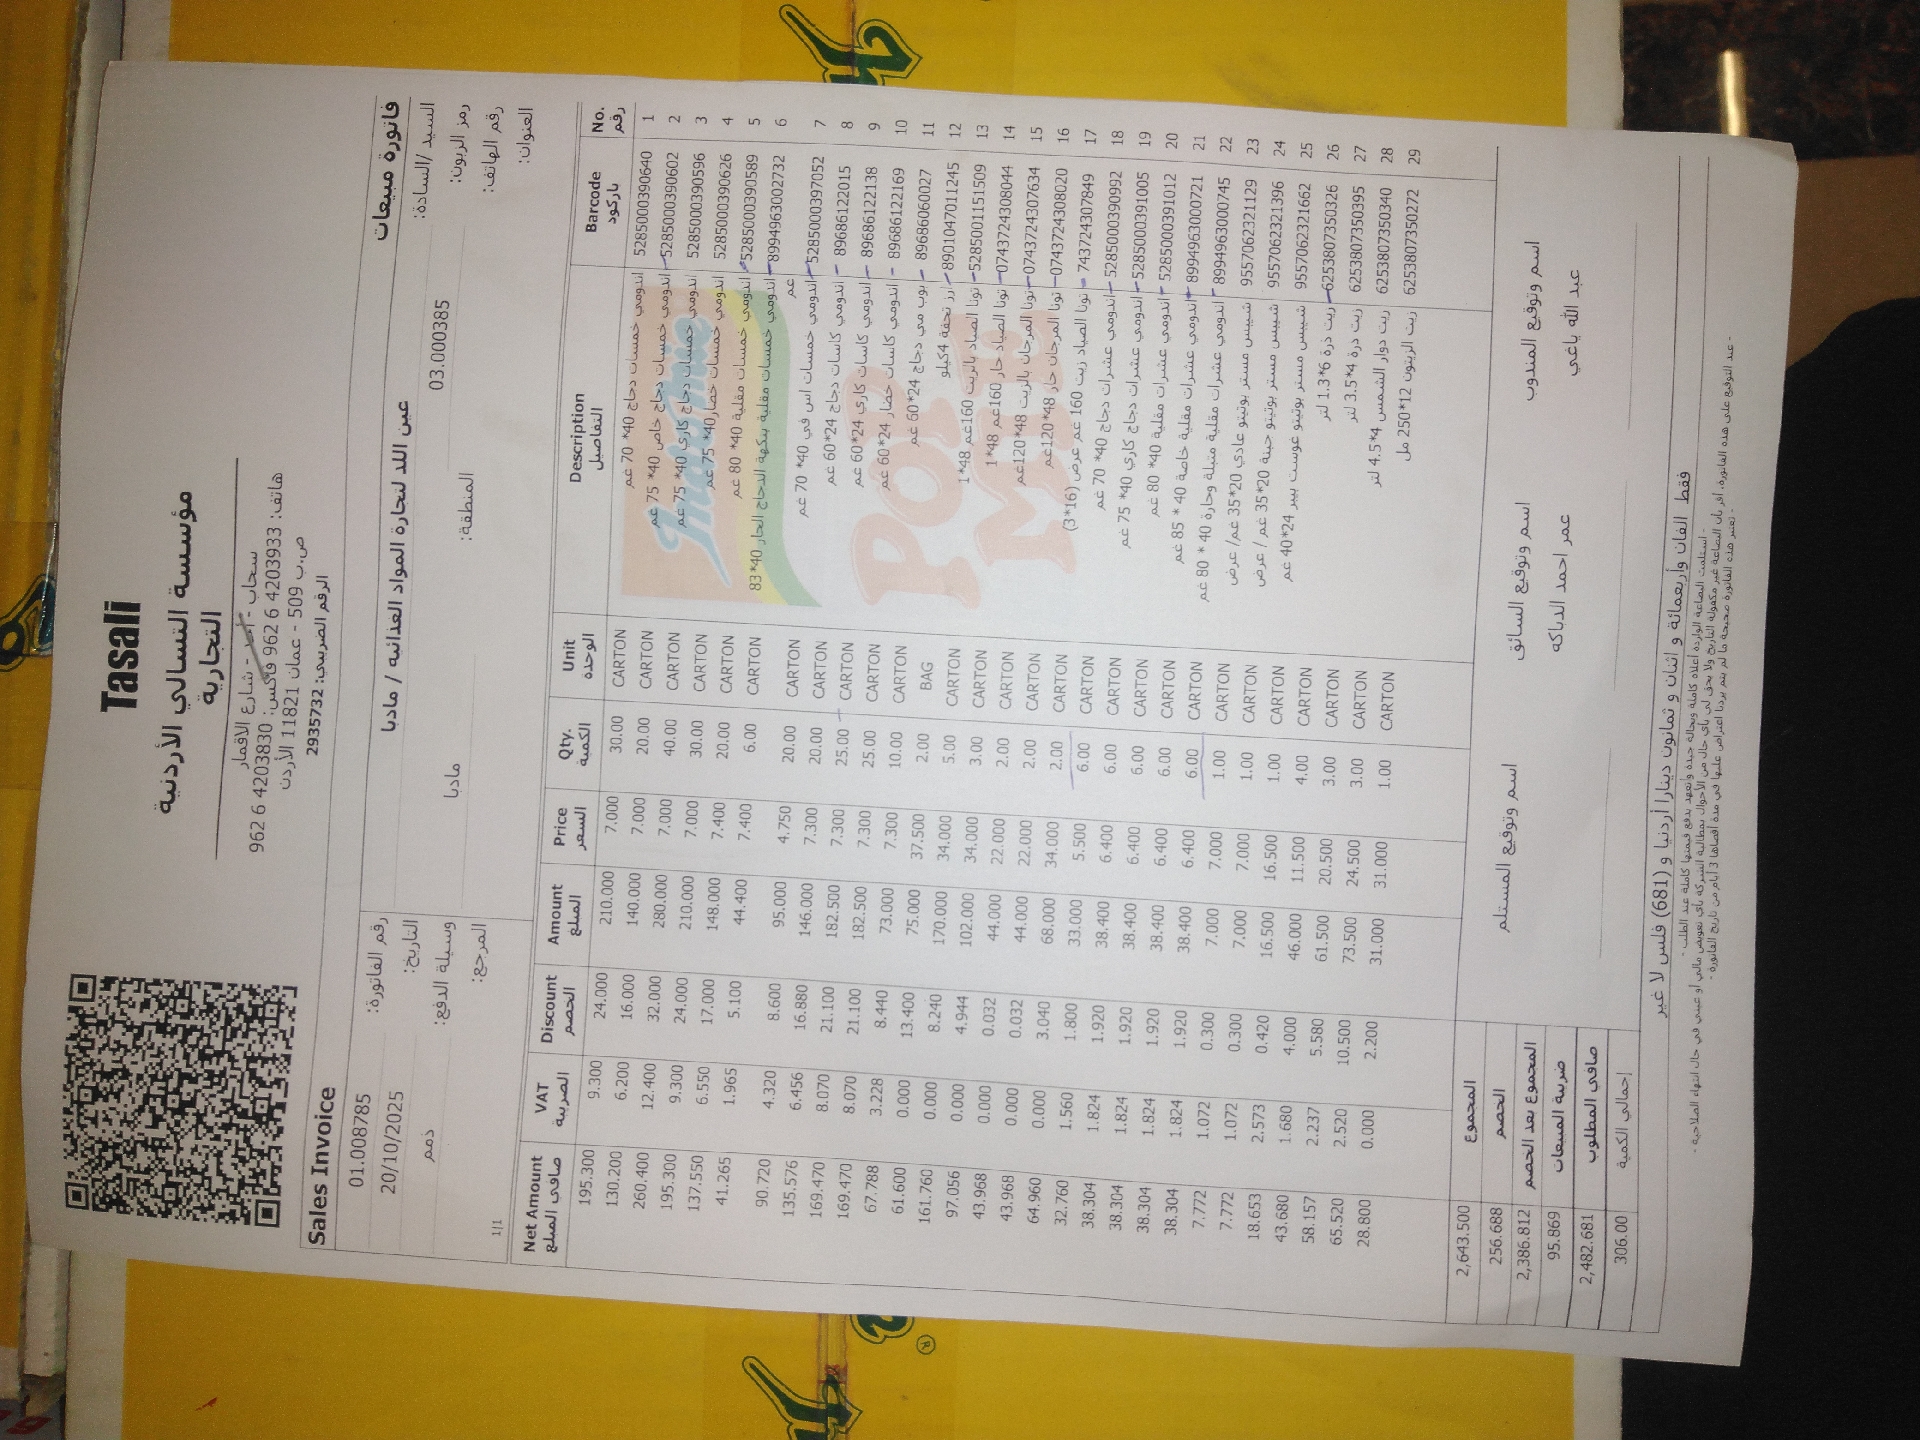 Tasali
مؤسسة التسالي الأردنية
التجارية
سحاب - أحد - شارع الاقمار
هاتف: 4203933 6 962 فاكس: 4203830 6 962
ص.ب 509 - عمان 11821 الأردن
الرقم الضريبي: 2935732
Sales Invoice
فاتورة مبيعات
رقم الفاتورة: 01.008785
التاريخ: 20/10/2025
وسيلة الدفع: ذمم
المرجع:
1/1
السيد /السادة: عبن اللد لتجارة المواد الغذائيه / مادبا
رمز الزبون: 03.000385
رقم الهاتف:
المنطقة: مادبا
العنوان:
No. Barcode Description Unit Qty. Price Amount Discount VAT Net Amount
رقم باركود التفاصيل الوحدة الكمية السعر المبلغ الحصم الضريبة صافي المبلغ
1 5285000390640 اندومي خمسات دجاج 40* 70 غم CARTON 30.00 7.000 210.000 24.000 9.300 195.300
2 5285000390602 اندومي خمسات دجاج خاص 40* 75 غم CARTON 20.00 7.000 140.000 16.000 6.200 130.200
3 5285000390596 اندومي خمسات دجاج كاري 40* 75 غم CARTON 40.00 7.000 280.000 32.000 12.400 260.400
4 5285000390626 اندومي خمسات خضار 40* 75 غم CARTON 30.00 7.000 210.000 24.000 9.300 195.300
5 5285000390589 اندومي خمسات مقلية 40* 80 غم CARTON 20.00 7.400 148.000 17.000 6.550 137.550
6 8994963002732 اندومي خمسات مقلية بنكهة الدجاج الحار 40*83 غم CARTON 6.00 7.400 44.400 5.100 1.965 41.265
7 5285000397052 اندومي خمسات اس في 40* 70 غم CARTON 20.00 4.750 95.000 8.600 4.320 90.720
8 89686122015 اندومي كاسات دجاج 24*60 غم CARTON 20.00 7.300 146.000 16.880 6.456 135.576
9 89686122138 اندومي كاسات كاري 24*60 غم CARTON 25.00 7.300 182.500 21.100 8.070 169.470
10 89686122169 اندومي كاسات خضار 24*60 غم CARTON 25.00 7.300 182.500 21.100 8.070 169.470
11 89686060027 بوب مي دجاج 24*60 غم CARTON 10.00 7.300 73.000 8.440 3.228 67.788
12 8901047011245 أرز تحفة 4كيلو BAG 2.00 37.500 75.000 13.400 0.000 61.600
13 5285001151509 تونا الصياد بالزيت 160غم 48*1 CARTON 5.00 34.000 170.000 8.240 0.000 161.760
14 074372430804​4 تونا الصياد حار 160غم 48*1 CARTON 3.00 34.000 102.000 4.944 0.000 97.056
15 0743724307634 تونا المرجان بالزيت 48*120غم CARTON 2.00 22.000 44.000 0.032 0.000 43.968
16 0743724308020 تونا المرجان حار 48*120غم CARTON 2.00 22.000 44.000 0.032 0.000 43.968
17 743724307849 تونا الصياد زيت 160 غم عرض (16*3) CARTON 2.00 34.000 68.000 3.040 0.000 64.960
18 5285000390992 اندومي عشرات دجاج 40* 70 غم CARTON 6.00 5.500 33.000 1.800 1.560 32.760
19 5285000391005 اندومي عشرات دجاج كاري 40* 75 غم CARTON 6.00 6.400 38.400 1.920 1.824 38.304
20 5285000391012 اندومي عشرات مقلية 40* 80 غم CARTON 6.00 6.400 38.400 1.920 1.824 38.304
21 8994963000721 اندومي عشرات مقلية خاصة 40 * 85 غم CARTON 6.00 6.400 38.400 1.920 1.824 38.304
22 8994963000745 اندومي عشرات مقلية متبلة وحارة 40 * 80 غم CARTON 6.00 6.400 38.400 1.920 1.824 38.304
23 9557062321129 شيبس مستر بوتيتو عادي 20*35 غم/ عرض CARTON 1.00 7.000 7.000 0.300 1.072 7.772
24 9557062321396 شيبس مستر بوتيتو جبنة 20*35 غم / عرض CARTON 1.00 7.000 7.000 0.300 1.072 7.772
25 9557062321662 شيبس مستر بوتيتو غوست بيبر 24*40 غم CARTON 1.00 16.500 16.500 0.420 2.573 18.653
26 6253807350326 زيت ذرة 6*1.3 لتر CARTON 4.00 11.500 46.000 4.000 1.680 43.680
27 6253807350395 زيت ذرة 4*3.5 لتر CARTON 3.00 20.500 61.500 5.580 2.237 58.157
28 6253807350340 زيت دوار الشمس 4*4.5 لتر CARTON 3.00 24.500 73.500 10.500 2.520 65.520
29 6253807350272 زيت الزيتون 12*250 مل CARTON 1.00 31.000 31.000 2.200 0.000 28.800
المجموع 2,643.500
الحصم 256.688
المجموع بعد الحصم 2,386.812
ضريبة المبيعات 95.869
صافي المطلوب 2,482.681
إجمالي الكمية 306.00
اسم وتوقيع المندوب
عبد الله ياغي
اسم وتوقيع السائق
عمر احمد الدباكه
اسم وتوقيع المستلم
فقط الفان وأربعمائة و اثنان و ثمانون دينارا أردنيا و (681) فلس لا غير
- استلمت البضاعة الواردة أعلاه كاملة وبحالة جيدة وأتعهد بدفع قيمتها كاملة عند الطلب -
- عند التوقيع على هذه الفاتورة، أقر بأن البضاعة غير مكفولة التاريخ ولا يحق لي بأي حال من الأحوال بمطالبة الشركة بأي تعويض مالي او عيني في حال انتهاء الصلاحية -
- تعتبر هذه الفاتورة صحيحة ما لم يتم يردنا اعتراض عليها في مدة أقصاها 3 أيام من تاريخ الفاتورة -
Indomie
POP MIE